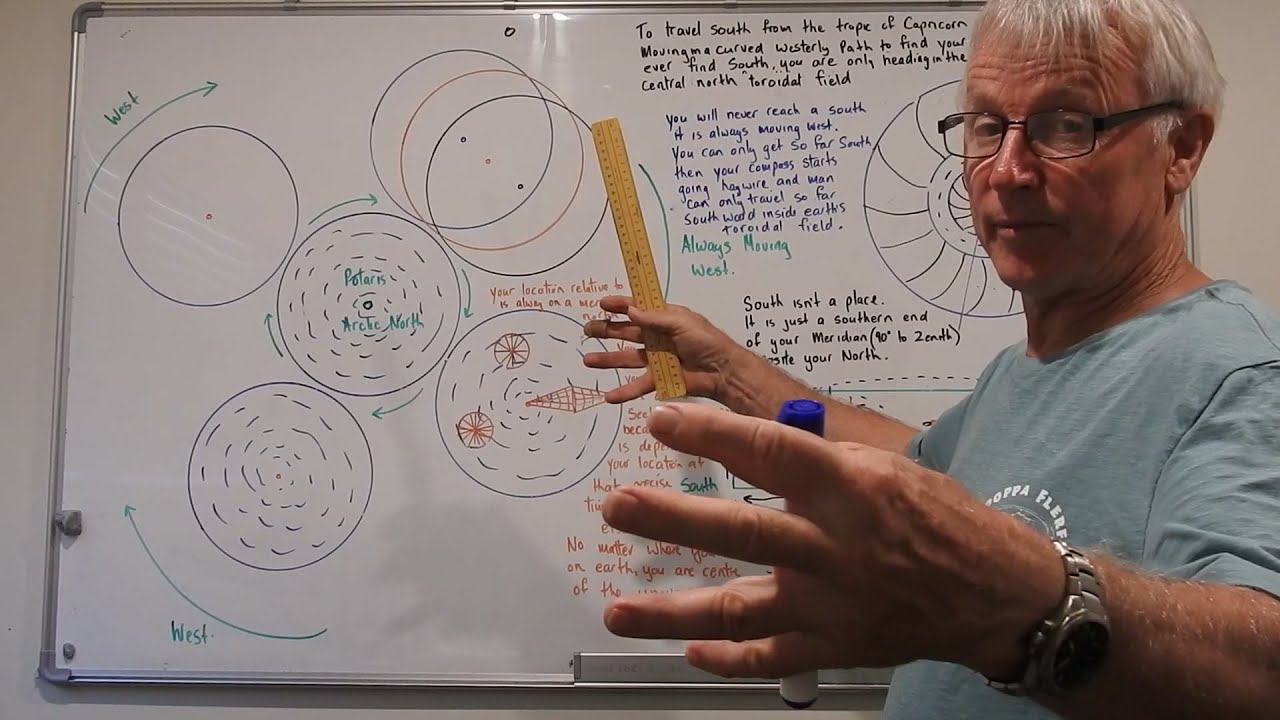 West
o
To travel South from the tropic of Capricorn
Moving in a curved Westerly Path to find your
ever find South, you are only heading in the
central north "toroidal field
you will never reach a south
it is always moving west.
You can only get so far South
then your compass starts
going haywire and man
can only travel so far
Southward inside earth's
toroidal field.
Always Moving
West.
Polaris
Arctic North
your location relative to
is alway on a
north
South isn't a place.
It is just a southern end
of your Meridian (90° to Zenith)
your North.
See
beca
is depe
your location at
that precise South
ti
e
No matter where yo
on earth, you are centre
of the
West.
OPPA FLERE